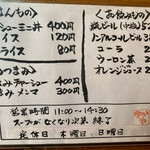 はんもの
シューミニ丼 400円
イス 120円
ライス 80円
つまみ
みチャーシュー 400円
み メンマ 300円
お飲みもの
瓶ビール(中瓶)
ノンアルコールビール
コーラ
ウーロン茶
オレンジジュース
営業時間 11:00〜14:30
スープがなくなり次第終了
定休日 木曜日.日曜日